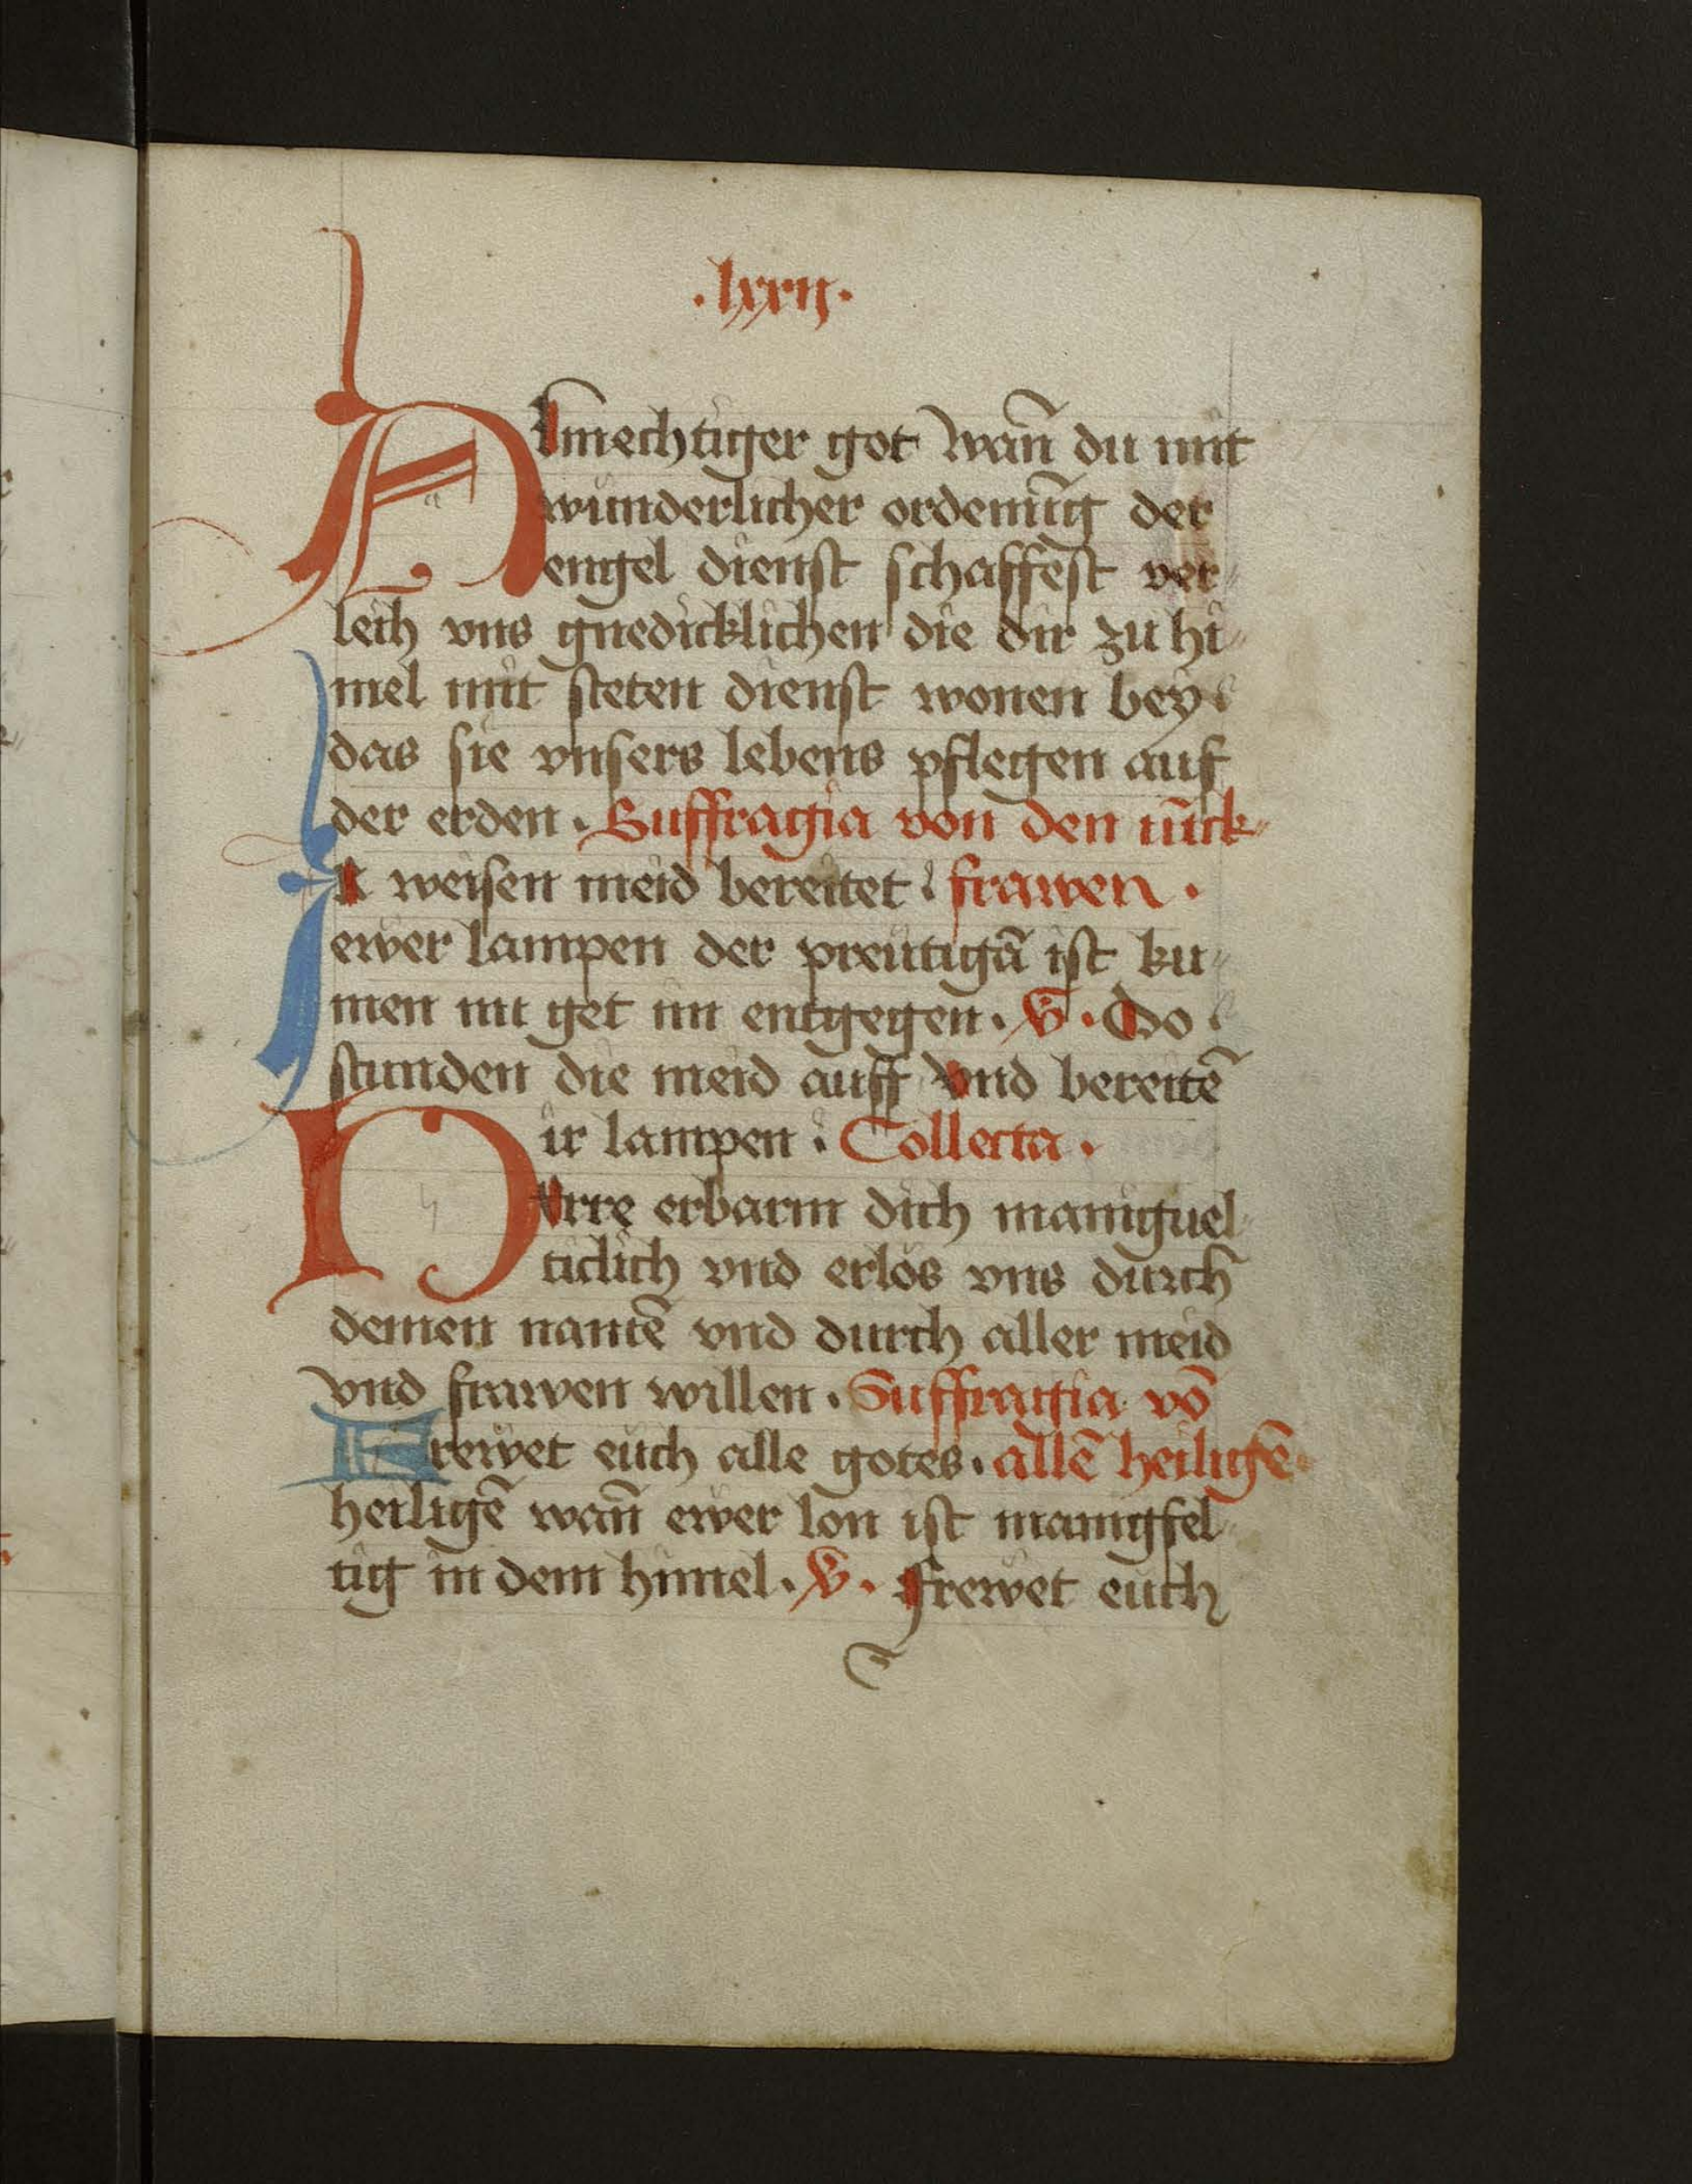 .lxxii.
Almechtiger got wañ du mit
wunderlicher ordenũg der
engel dienst schaffest ver
leih vns gnedicklichen die dir zu hi
mel mit steten dienst wonen bey
das sie vnsers lebens pflegen auf
der erden. Suffragia von den iũck
Ir weisen meid bereitet. frawen.
ewer lampen der preutigã ist ku
men nu get im entgegen. V. Do
stunden die meid auff vnd bereitẽ
ir lampen. Collecta.
Herre erbarm dich maniguel
ticlich vnd erlos vns durch
deinen namẽ vnd durch aller meid
vnd frawen willen. Suffragia võ
Frewet euch alle gotes. allẽ heiligẽ
heiligẽ wañ ewer lon ist manigfel
tig in dem himel. V. Frewet euch